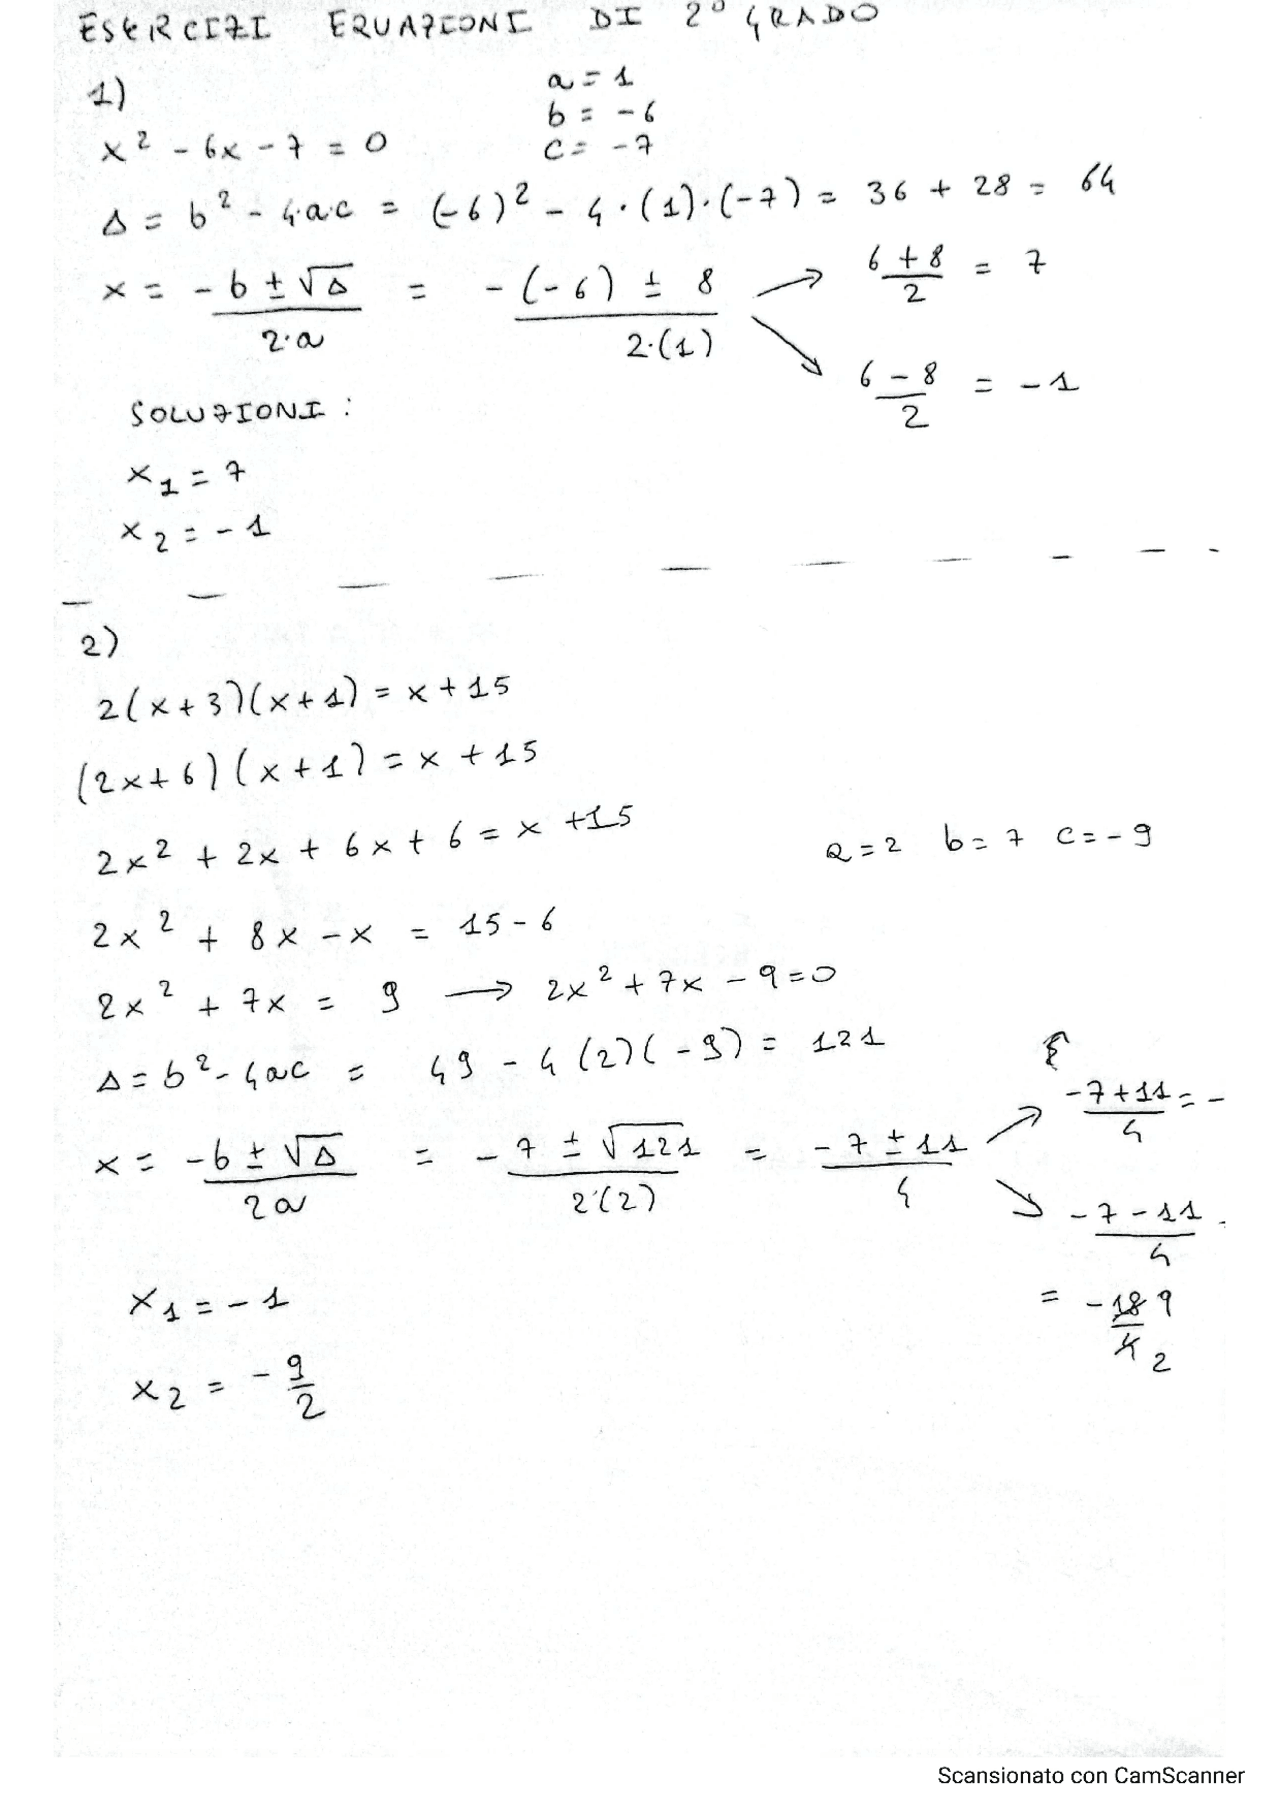 ESERCIZI EQUAZIONI DI 2° GRADO
1)
a = 1
b = -6
x² - 6x - 7 = 0
c = -7
Δ = b² - 4·a·c = (-6)² - 4·(1)·(-7) = 36 + 28 = 64
x = -b ± √Δ / 2·a = -(-6) ± 8 / 2·(1) → 6 + 8 / 2 = 7
↘ 6 - 8 / 2 = -1
SOLUZIONI :
x₁ = 7
x₂ = -1
2)
2(x+3)(x+1) = x+15
(2x+6)(x+1) = x+15
2x² + 2x + 6x + 6 = x +15
a = 2 b = 7 c = -9
2x² + 8x - x = 15 - 6
2x² + 7x = 9 → 2x² + 7x - 9 = 0
Δ = b² - 4ac = 49 - 4(2)(-9) = 121
x = -b ± √Δ / 2a = -7 ± √121 / 2·(2) = -7 ± 11 / 4 ↗ -7+11 / 4 = -
↘ -7-11 / 4
= -18 9 / 4 2
x₁ = -1
x₂ = -9/2
Scansionato con CamScanner